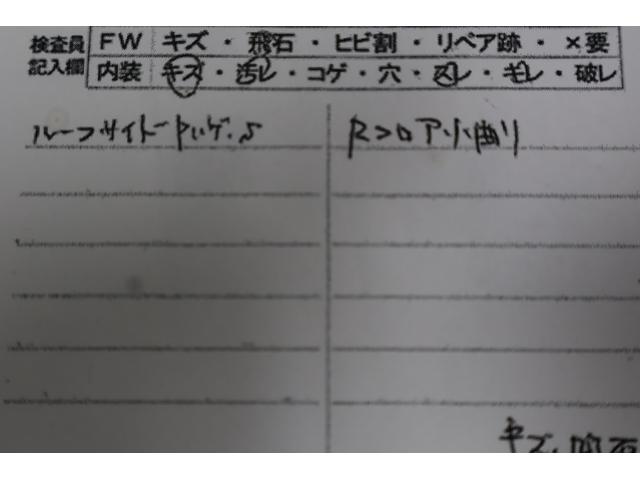 検査員
記入欄
FW キズ・飛石・ヒビ割・リペア跡・×要
内装 キズ・汚レ・コゲ・穴・スレ・キレ・破レ
ルーフサイド
Rフロア小曲り
キズ、